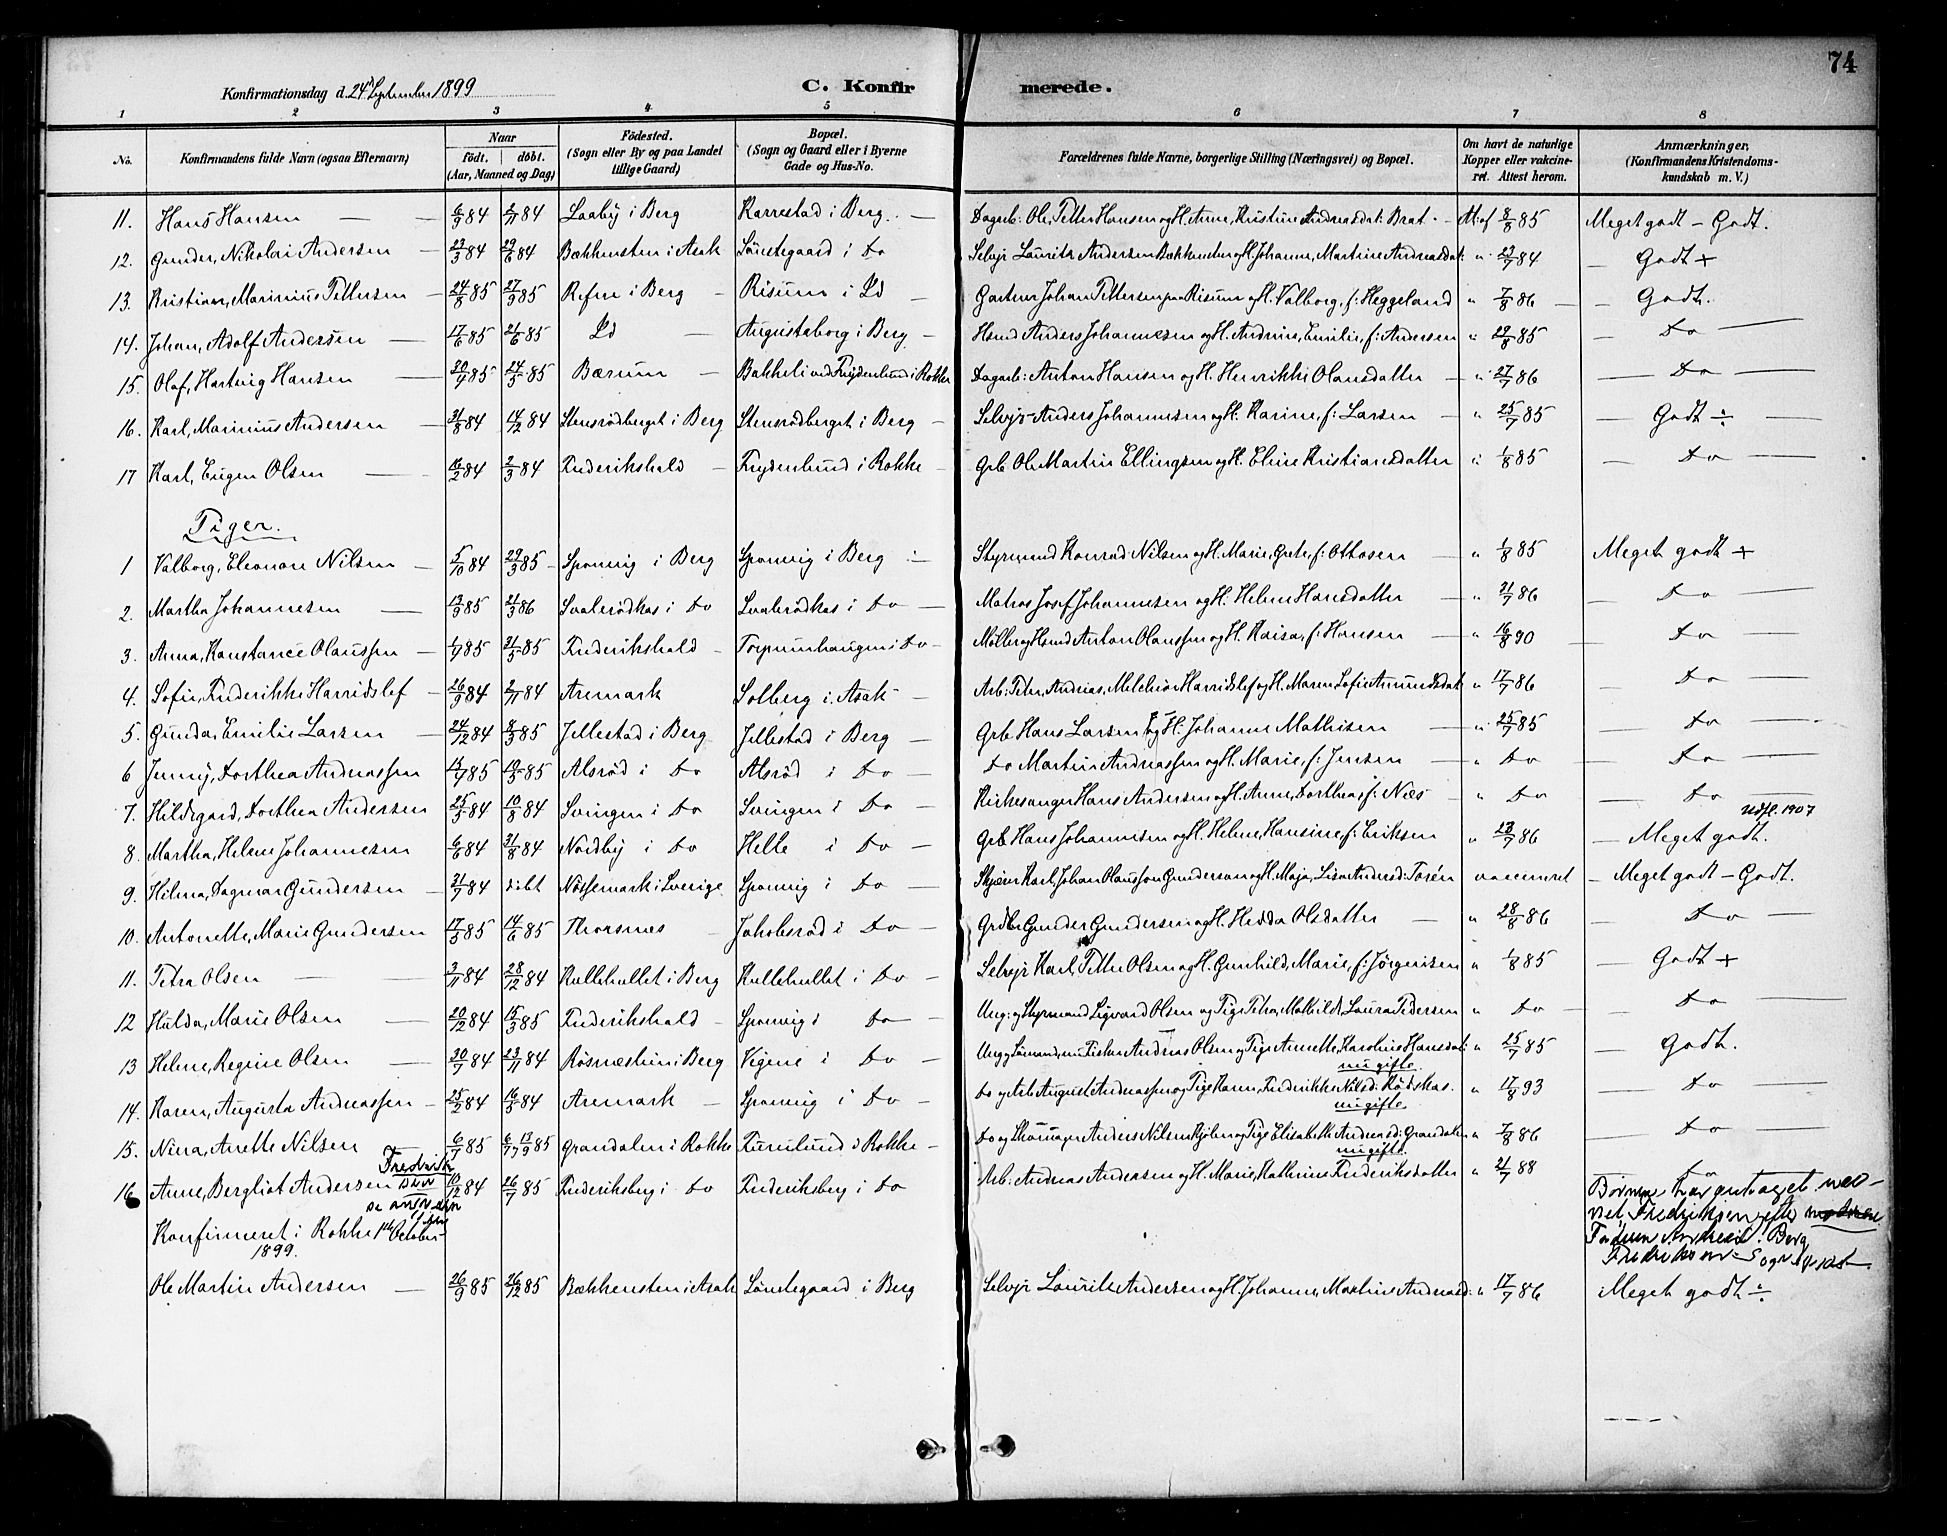 74
Konfirmationsdag d. 24 September 1899
C. Konfirmerede.
1 2 3 4 5 6 7 8
No. Konfirmandens fulde Navn (ogsaa Efternavn) Naar födt. döbt. (Aar, Maaned og Dag) Födested. (Sogn eller By og paa Landet tillige Gaard) Bopæl. (Sogn og Gaard eller i Byerne Gade og Hus-No. Forældrenes fulde Navne, borgerlige Stilling (Næringsvei) og Bopæl. Om havt de naturlige Kopper eller vakcineret. Attest herom. Anmærkninger, (Konfirmandens Kristendomskundskab m. V.)
11. Hans Hansen 6/9 84 2/11 84 Laaby i Berg Karrestad i Berg Dagarb: Ole, Petter Hansen og H. Anne, Kristine Andreasdat: Brat Att. af 8/8 85 Meget godt - Godt.
12. Gunder, Nikolai Andersen 23/3 84 29/6 84 Bækkensten i Asak Löntegaard i Do Selvejr Laurits Andersen Bækkensten og H. Johanne, Martine Andreasdat: " 23/7 84 Godt +
13. Kristian, Marinius Pettersen 24/8 85 27/9 85 Refne i Berg Risum i Id Gartner Johan Pettersen paa Risum og H. Valborg, f: Heggeland " 7/8 86 Godt.
14. Johan, Adolf Andersen 17/6 85 21/6 85 Id Augustaborg i Berg Hsmd Anders Johannesen og H. Andrine, Emilie, f: Andersen " 29/8 85 Do
15. Olaf, Hartvig Hansen 85 24/5 85 Bærum Bakkeli ved Frydenlund i Rokke Dagarb: Anton Hansen og H. Henrikke Olausdatter " 27/7 86 Do
16. Karl, Marinius Andersen 31/8 84 14/12 84 Stensrödberget i Berg Stensrödberget i Berg Selvejr Anders Johannesen og H. Karine, f: Larsen " 25/7 85 Godt ÷
17 Karl, Eugen Olsen 84 2/3 84 Frederikshald Frydenlund i Rokke Grb Ole Martin Ellingsen og H. Eline Kristiansdatter " 1/8 85 Do
Piger.
1 Valborg, Eleonore Nilsen 5/10 84 29/3 85 Sponvig i Berg Sponvig i Berg Styrmand Konrad Nilsen og H. Marie, Grete, f: Ottosen " 1/8 85 Meget godt +
2. Martha Johannesen 13/9 85 21/3 86 Svalerödkas i Do Svalerödkas i Do Matros Josef Johannesen og H: Helene Hansdatter " 21/7 86 Do
3. Anna, Konstance Olaussen 85 31/5 85 Frederikshald Torpumhaugen i Do Möller og Hsmd Anton Olaussen og H. Kaisa, f: Hansen " 16/8 90 Do
4. Sofie, Frederikke Harridslef 26/9 84 2/11 84 Aremark Solberg i Asak Arb: Peter, Andreas, Melchior Harridslef og H. Maren Sofie Amundsdat " 17/7 86 Do
5. Gunda, Emilie Larsen 24/12 84 8/3 85 Jellestad i Berg Jellestad i Berg Grb Hans Larsen og H: Johanne Mathisen " 25/7 85 Do
6 Jenny, Dorthea Andreassen 85 85 Alsröd i Do Alsröd i Do Do Martin Andreassen og H. Marie, f: Jensen " Do Do
7. Hildegard, Dorthea Andersen 25/5 84 10/8 84 Svingen i Do Svingen i Do Kirkesanger Hans Andersen og H. Anne, Dorthea, f: Næs " Do Do
Udfl. 1907
8. Martha, Helene Johannesen 6/6 84 31/8 84 Nordby i Do Helle i Do Grb Hans Johannesen og H. Helene, Hansine, f: Eriksen " 86 Meget godt.
9. Hilma, Dagmar Gundersen 31/7 84 döbt Nössemark i Sverige Sponvig i Do Skjærer Karl, Johan Olausson Gunderson og H. Maja, Lisa Andersd: Torén vaccineret Meget godt - Godt.
10. Antonette, Marie Gundersen 17/5 85 14/6 85 Thorsnes Jakobsröd i Do Grdbr Gunder Gundersen og H. Hedda Olsdatter " 28/8 86 Do
11. Petra Olsen 3/11 84 28/12 84 Kullehullet i Berg Kullehullet i Do Selvejr Karl, Petter Olsen og H. Gunhild, Marie, f: Jörgensen " 1/8 85 Godt +
12 Hulda, Marie Olsen 20/12 84 15/3 85 Frederikshald Sponvig i Do Ung: og Styrmand Sigvard Olsen og Pige Petra, Mathilde, Laura Pedersen " Do Do
13 Helene, Regine Olsen 30/7 84 23/11 84 Rösnæstun i Berg Vigene i Do Ung og Sömand, nu Fisker Andreas Olsen og Pige Annette, Karoline Hansdat: " 25/7 85 Godt.
nu gifte.
14. Karen, Augusta Andreassen 25/2 84 16/3 84 Aremark Sponvig i Do Do og Arb August Andreassen og Pige Karen, Frederikke Nilsd: Rödskas. " 17/8 93 Do
nu gifte.
15. Nina, Anette Nilsen 6/7 85 13/9 85 Grandalen i Rokke Furulund i Rokke Do og Skomager Anders Nilsen Kjölen og Pige Elisabeth Andreasd: Grandalen " 7/8 86 Do
nu gifte.
16 Anne, Bergliot Andersen 10/12 84 26/7 85 Frederiksberg i Do Frederiksberg i Do Arb: Andreas Andersen og H. Marie, Kathrine Frederiksdatter " 21/7 88 Do
Fredriksen
se anm.
Börnene har antaget navnet Fredriksen efter
Berg
Konfirmeret i Rokke 1ste October
1899.
Ole Martin Andersen 26/9 85 26/12 85 Bækkensten i Asak Löntegaard i Berg Selvejr Laurits Andersen og H. Johanne, Martine Andreasd: " 17/7 86 Meget godt ÷